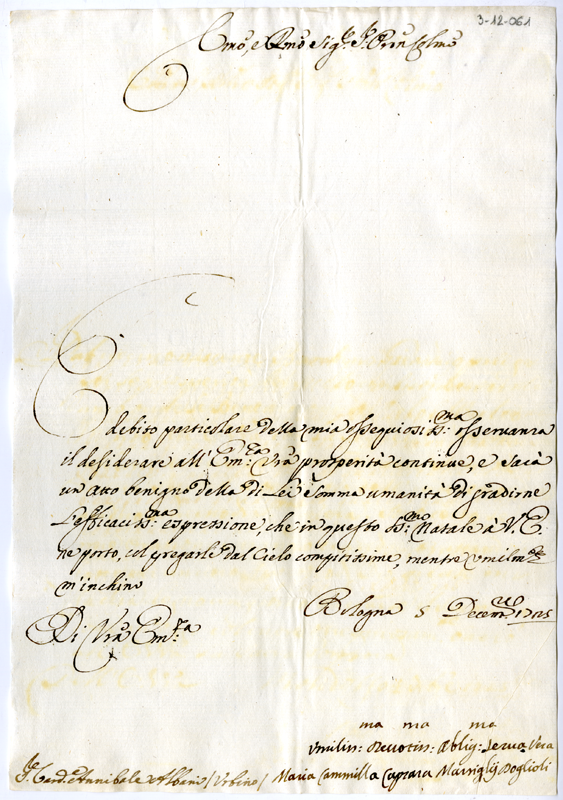 3-12-061
Emo, e Rmo Sig.re Sig.re Pron Colmo
È debito particolare della mia ossequiosiss:ma osservanza
il desiderare all' Em:za Vra prosperità continue, e sarà
un atto benigno della di Lei somma umanità di gradirne
l'efficaciss:ma espressione, che in questo Ss:mo Natale à V. E.
ne porto, col pregarle dal Cielo compitissime, mentre umilm:te
m'inchino
Di Vra Em:za
Bologna 5 Decem:bre
Umiliss:ma Devotiss:ma Oblig:ma Serva Vera
Sig.r Card. Annibale Albani / Urbino / Maria Cammilla Caprara Marsiglij Doglioli